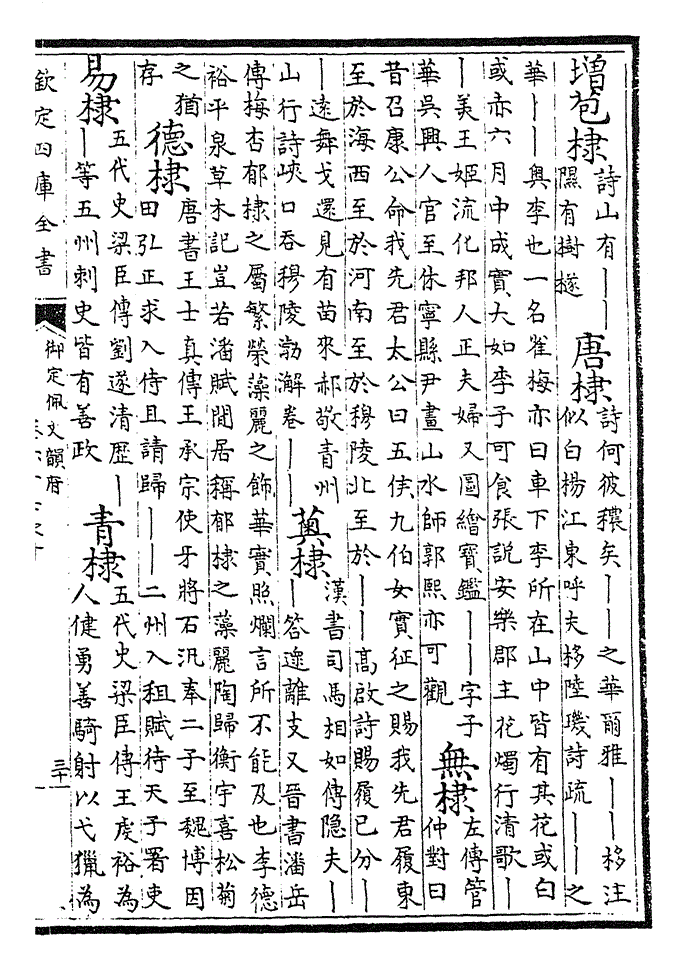 增苞棣
詩山有——
隰有樹檖
唐棣
詩何彼穠矣——之華爾雅——栘注
似白楊江東呼夫栘陸璣詩疏——之
華——奥李也一名雀梅亦曰車下李所在山中皆有其花或白
或赤六月中成實大如李子可食張說安樂郡主花燭行清歌—
—美王姬流化邦人正夫婦又圖繪寶鑑——字子
華吳興人官至休寧縣尹畫山水師郭熙亦可觀
無棣
左傳管
仲對曰
昔召康公命我先君太公曰五侯九伯女實征之賜我先君履東
至於海西至於河南至於穆陵北至於——高啟詩賜履已分—
—遠舞戈還見有苗來郝敬青州
山行詩峽口吞穆陵勃澥卷——
薁棣
漢書司馬相如傳隐夫—
—荅遝離支又晉書潘岳
傳梅杏郁棣之屬繁榮藻麗之飾華實照爛言所不能及也李德
裕平泉草木記豈若潘賦閒居稱郁棣之藻麗陶歸衡宇喜松菊
之猶
存
德棣
唐書王士真傳王承宗使牙將石汎奉二子至魏博因
田弘正求入侍且請歸——二州入租賦待天子署吏
易棣
五代史梁臣傳劉遂清歷—
—等五州刺史皆有善政
青棣
五代史梁臣傳王虔裕為
人健勇善騎射以弋獵為
欽定四庫全書
御定佩文韻府